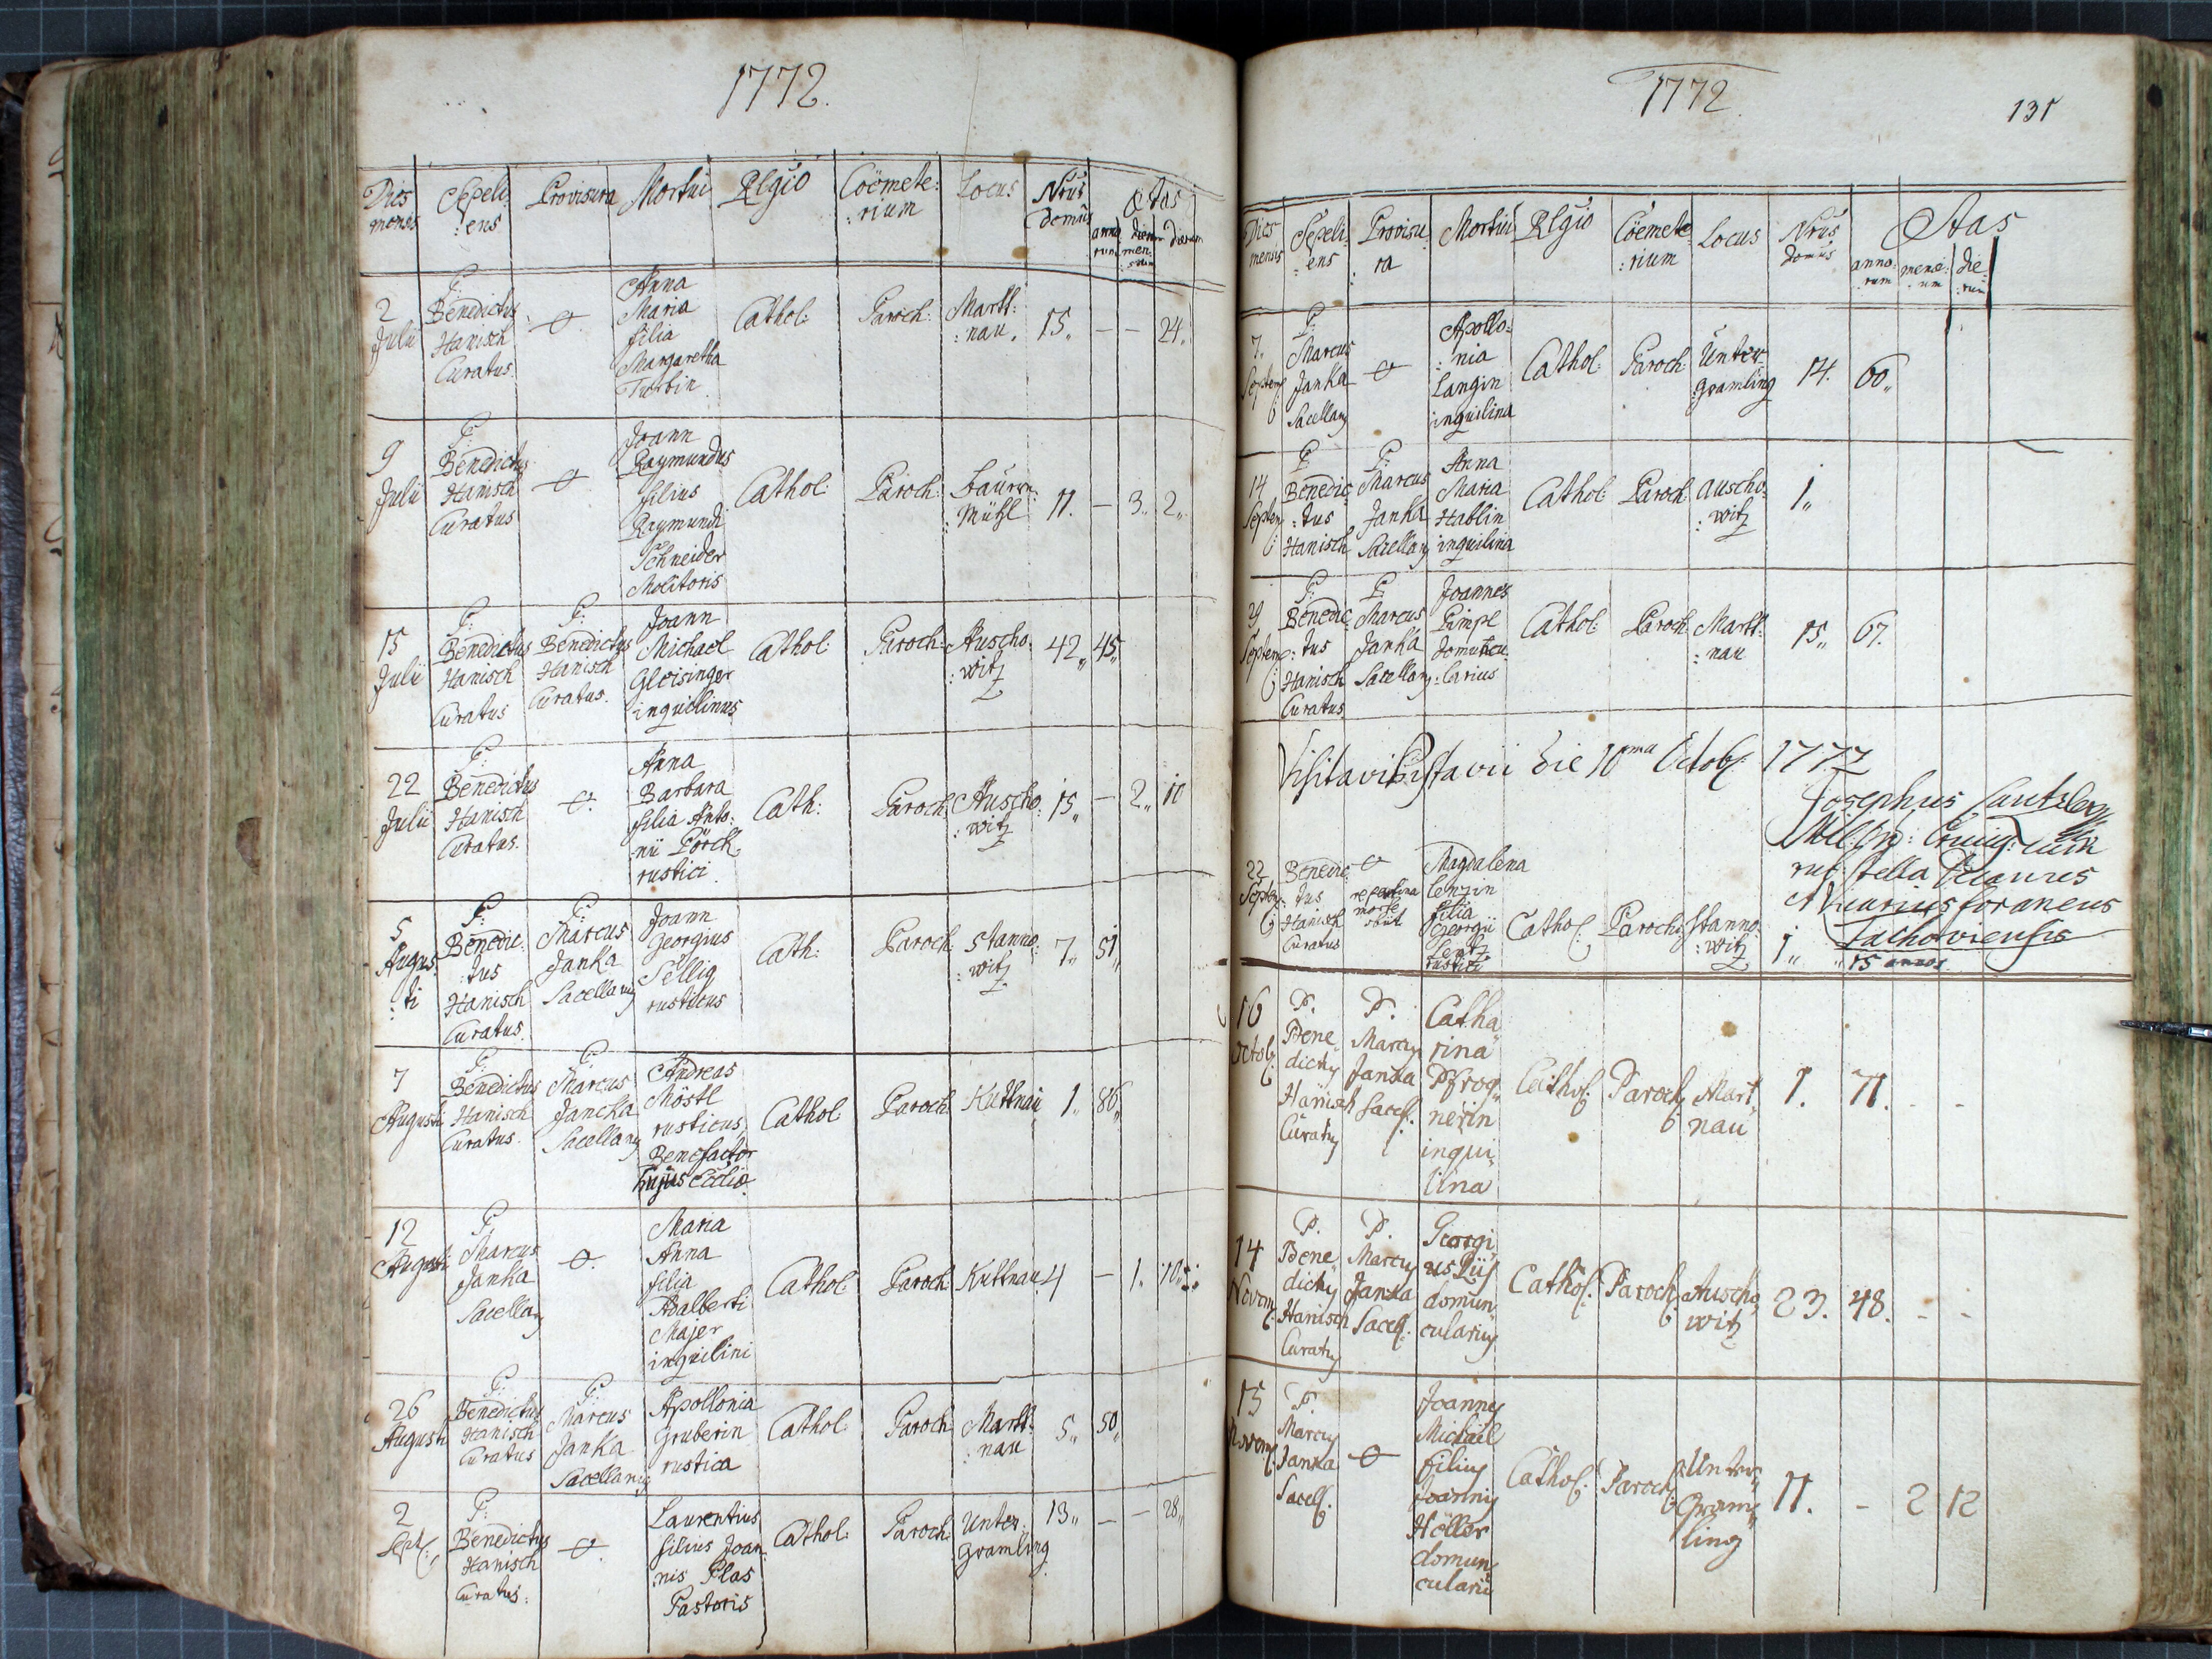 1772.
Dies mensis | Sepeli:ens | Provisura | Mortui | Rlgio | Coëmete:rium | Locus | Nrus Domus | Ætas annorum mensium dierum
2 Julii | P: Benedictus Hanisch Curatus | o | Anna Maria filia Margaretha Turbin | Cathol: | Paroch: | Martt:nau | 15 | – | – | 24
9 Julii | P: Benedictus Hanisch Curatus | o | Joann Raymundus filius Raymundi Schneider Molitoris | Cathol: | Paroch: | Mühl | 11. | – | 3. | 2
15 Julii | P: Benedictus Hanisch Curatus | P: Benedictus Hanisch Curatus | Joann Michael Gleisinger inquilinus | Cathol: | Paroch: | Auscho:witz | 42 | 45
22 Julii | P: Benedictus Hanisch Curatus. | o | Anna Barbara filia Anto:nii Pörck rustici | Cath: | Paroch: | Auscho:witz | 15 | – | 2 | 10
5 Augus:ti | P: Benedic:tus Hanisch Curatus. | P: Marcus Janka Sacellanus | Joann Georgius Sellig rusticus | Cath: | Paroch: | Stanno:witz | 7 | 51
7 Augusti | P: Benedictus Hanisch Curatus. | P: Marcus Jancka Sacellanus | Andreas Möstl rusticus Benefactor hujus Ecclie | Cathol: | Paroch: | Kuttnau | 1. | 86
12 Augusti | P: Marcus Janka Sacellanus | o | Maria Anna filia Adalberti Majer inquilini | Cathol: | Paroch: | Kuttnau | 4 | – | 1. | 10
26 Augusti | P: Benedictus Hanisch Curatus | P: Marcus Janka Sacellanus | Apollonia Gruberin rustica | Cathol: | Paroch: | Martt:nau | 5 | 50
2 Sept: | P: Benedictus Hanisch Curatus: | o | Laurentius filius Joan:nis Plas Pastoris | Cathol: | Paroch: | Unter Gramling | 13 | – | – | 28
1772
131
Dies mensis | Sepeli:ens | Provisu:ra | Mortui | Rlgio | Cöemete:rium | Locus | Nrus domus | Ætas anno:rum mensi:um die:rum
7. Septemb | P: Marcus Janka Sacellanus | o | Apollo:nia Langin inquilina | Cathol: | Paroch: | Unter Gramling | 14. | 60
14 Septemb | P: Benedic:tus Hanisch | P: Marcus Janka Sacellanus | Anna Maria Hablin inquilina | Cathol: | Paroch: | Auscho:witz | 1
29 Septemb | P: Benedic:tus Hanisch Curatus | P: Marcus Janka Sacellanus | Joannes Pimpl domuncu:larius | Cathol: | Paroch: | Martt:nau | 15 | 67.
Visitavi die 10ma Octob: 1772
Josephus
rub: stella Decanus
Vicarius foraneus
Tachoviensis
22 Septemb | Benedic:tus Hanisch Curatus | o repentina morte obiit | Magdalena Lenzin filia Georgii Lentz rustici | Cathol: | Paroch: | Stanno:witz | 1 | 15 annos
16 Octob: | P. Benedictus Hanisch Curatus | P. Marcus Janka Sacell: | Catharina Pfrognerin inquilina | Cathol: | Paroch: | Martnau | 1. | 71. | - | -
14 Novemb: | P. Benedictus Hanisch Curatus | P. Marcus Janka Sacell: | Georgius domuncularius | Cathol: | Paroch: | Auschowitz | 23. | 48. | - | -
15 Novemb: | P. Marcus Janka Sacell: | o | Joannes Michäel filius Joannis Höller domuncularii | Cathol: | Paroch: | Unter Gramling | 11. | - | 2 | 12